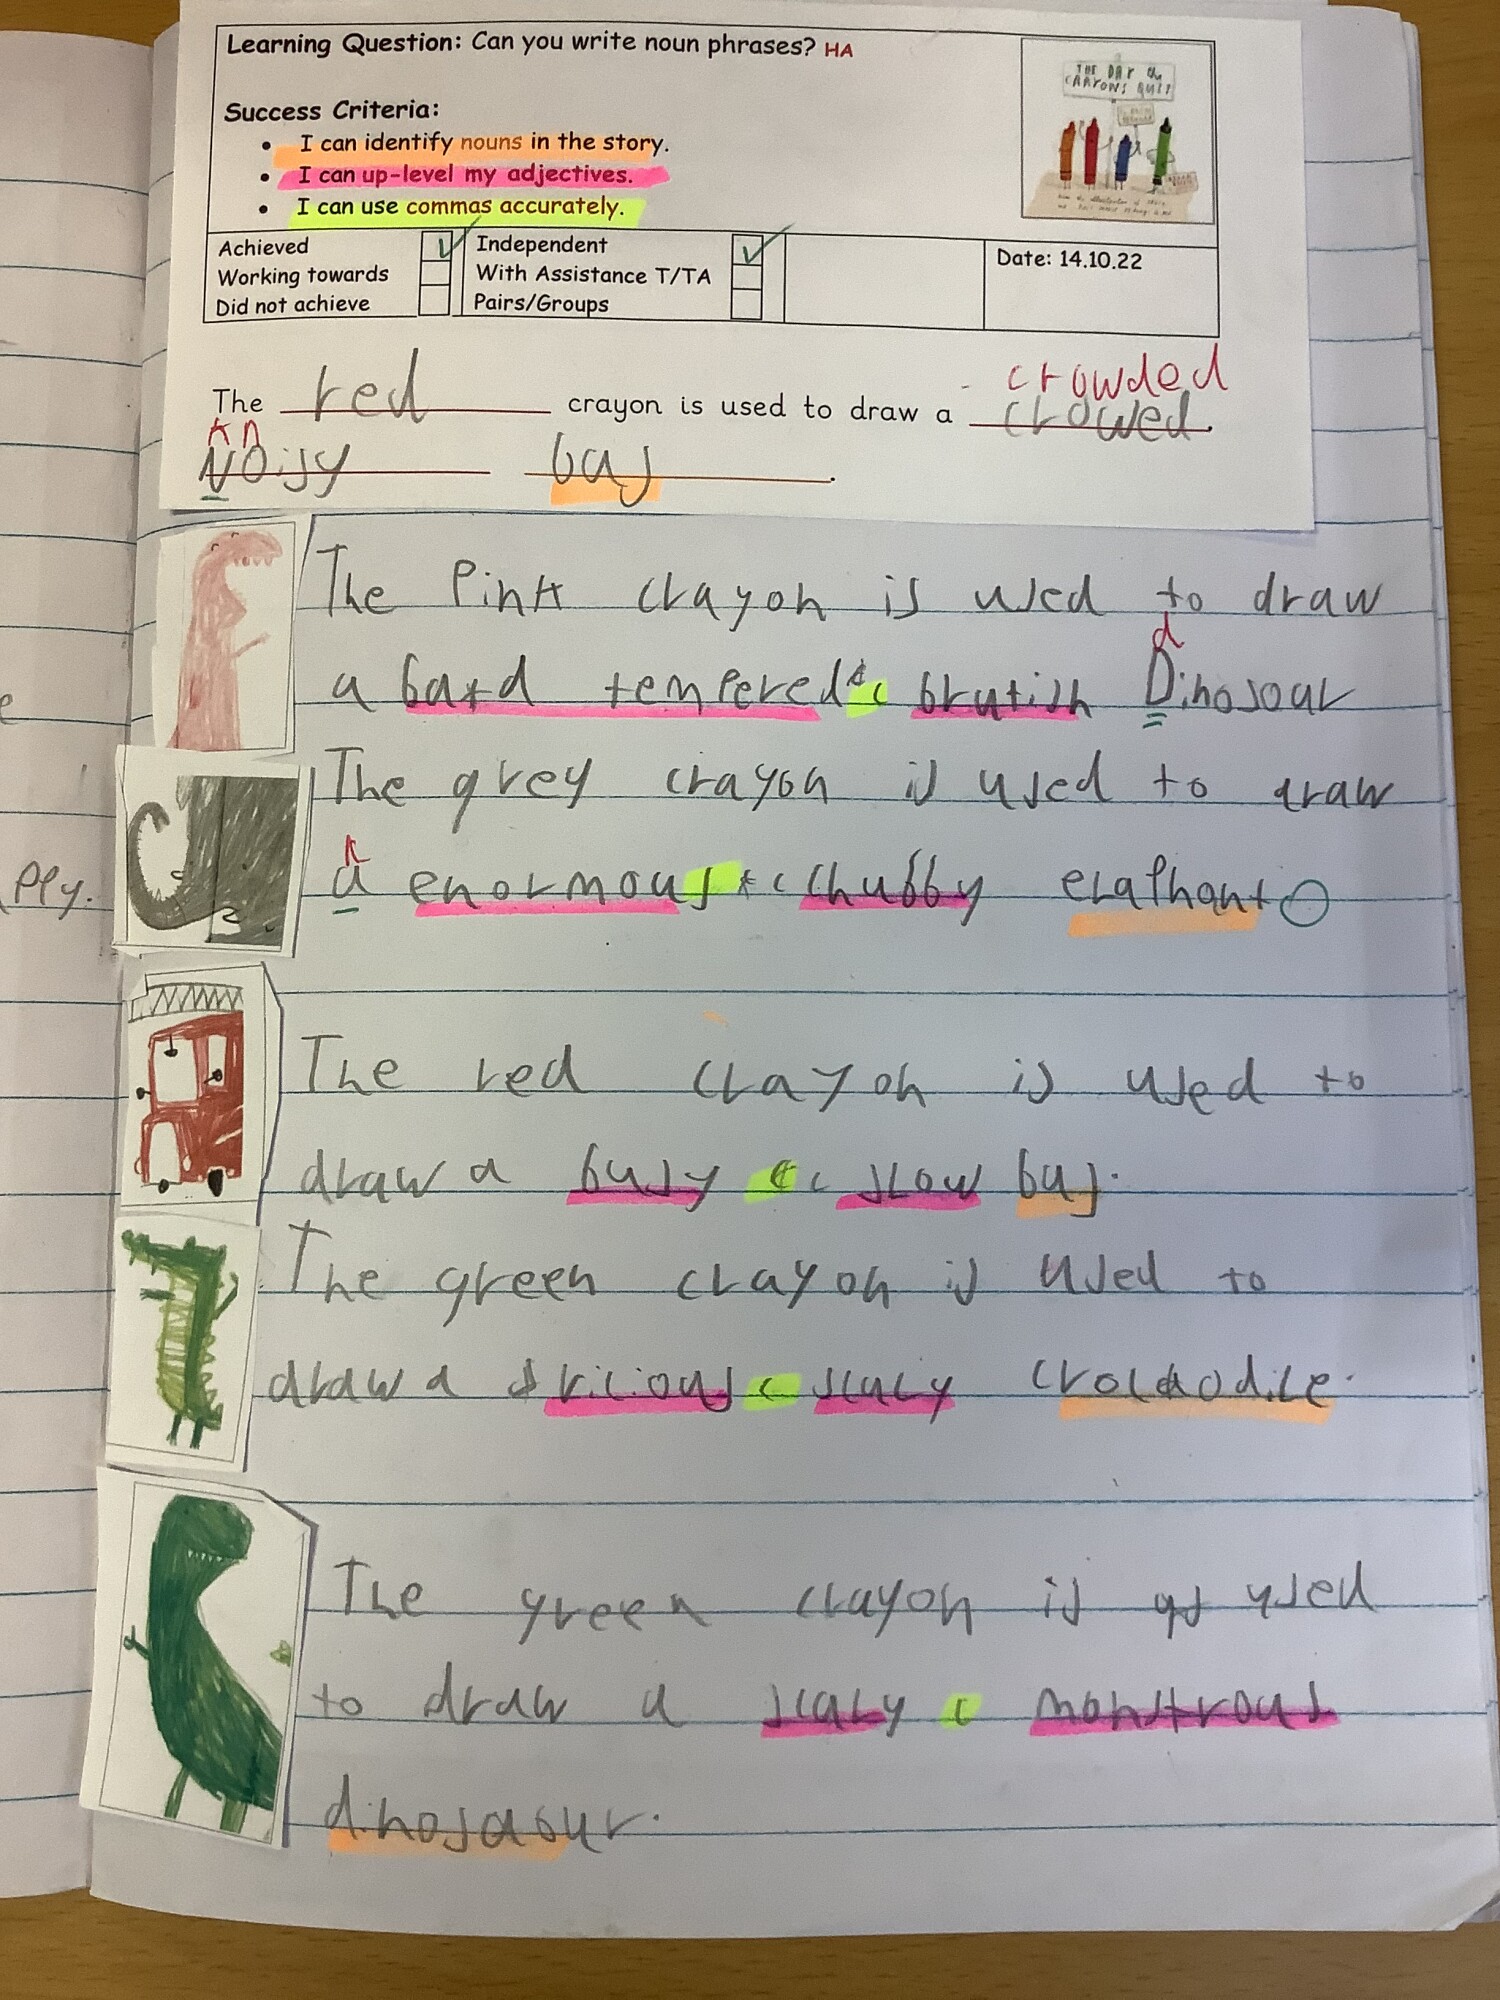 Learning Question: Can you write noun phrases? HA
THE DAY the
CRAYONS QUIT
Success Criteria:
• I can identify nouns in the story.
• I can up-level my adjectives.
• I can use commas accurately.
Achieved
Working towards
Did not achieve
Independent
With Assistance T/TA
Pairs/Groups
Date: 14.10.22
crowded
The red crayon is used to draw a crowed,
n
Noisy bus.
The Pink crayon is used to draw
d
a bad tempered, brutish Dinosour
The grey crayon is used to draw
a enormous, chubby elaphant
ply.
e
The red crayon is used to
draw a busy, slow bus.
The green crayon is used to
draw a vicious, scaly crocodile.
The green crayon is used
to draw a scaly, monstrous
dinosaour.